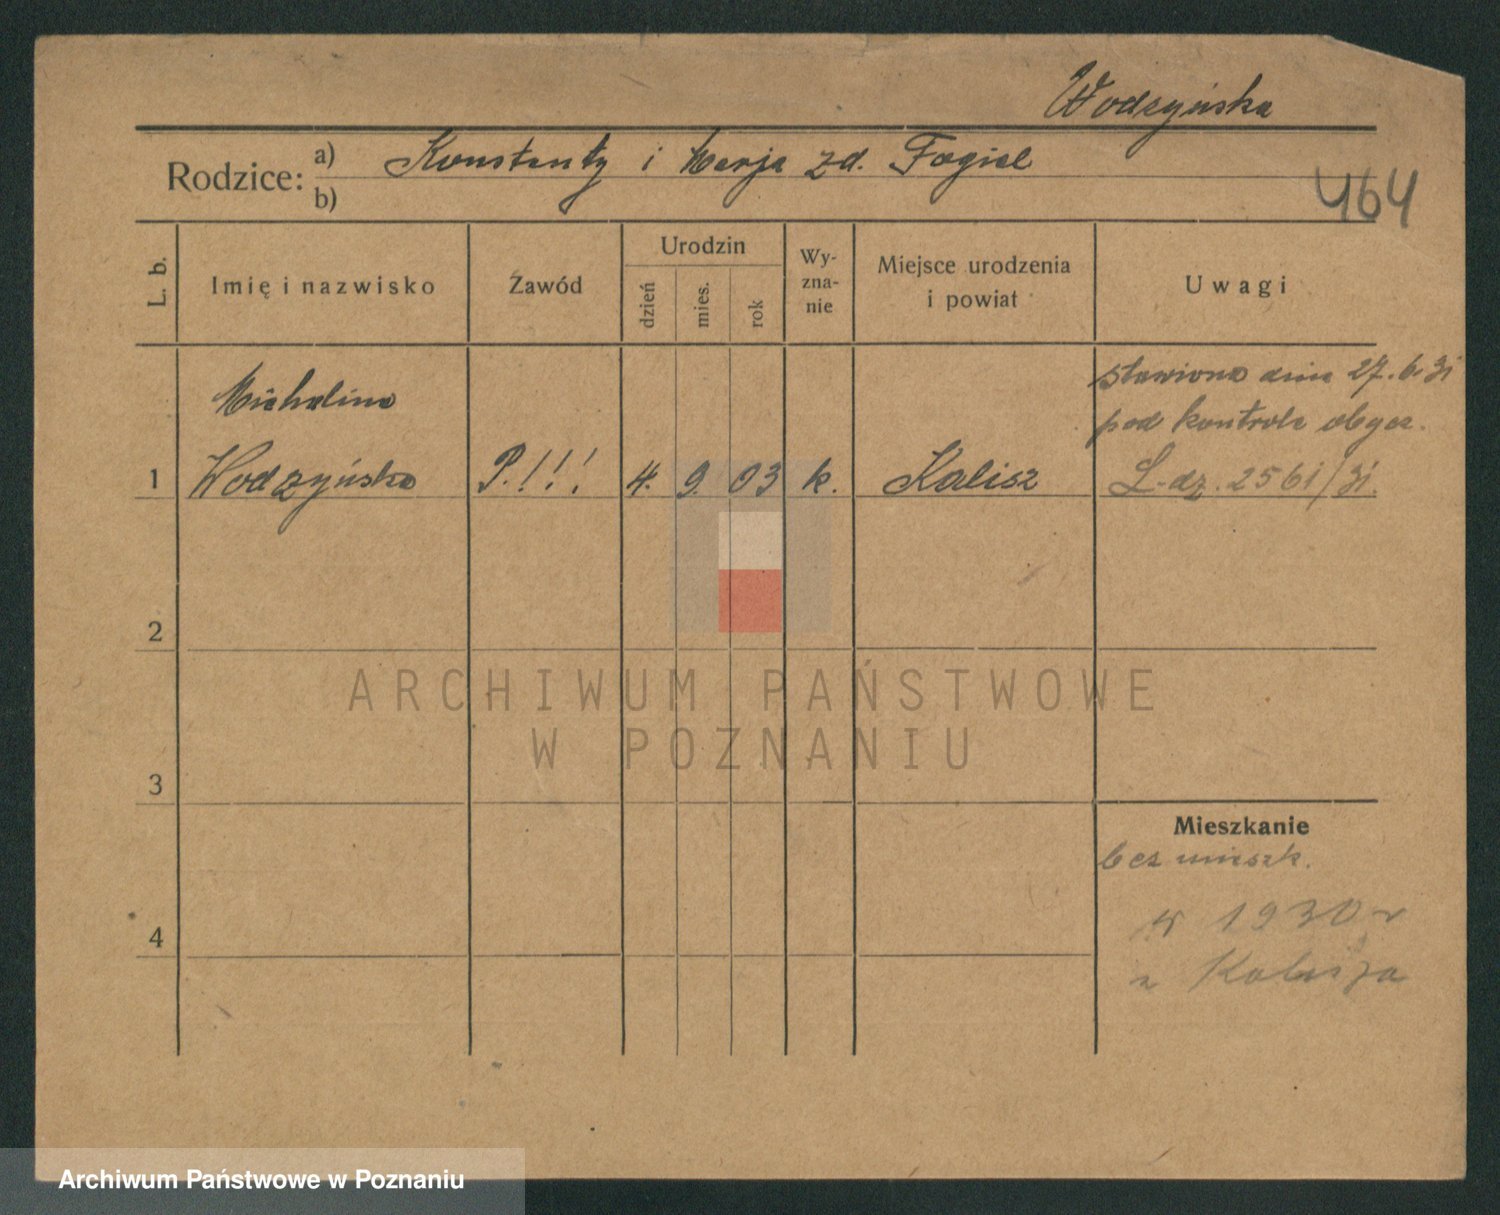 Wodzyńska
Rodzice: a) Konstanty i Marja zd. Fogiel
b)
464
L. b.
Imię i nazwisko
Zawód
Urodzin
dzień
mies.
rok
Wy-
zna-
nie
Miejsce urodzenia
i powiat
Uwagi
Michalina
1 Wodzyńska P.!!! 4. 9. 03 k. Kalisz
stawiona dnia 27.6.31
pod kontrolę obycz.
L.dz. 2561/31.
2
3
4
Mieszkanie
bez mieszk.
w 1930 r
z Kalisza
ARCHIWUM PAŃSTWOWE
W POZNANIU
Archiwum Państwowe w Poznaniu